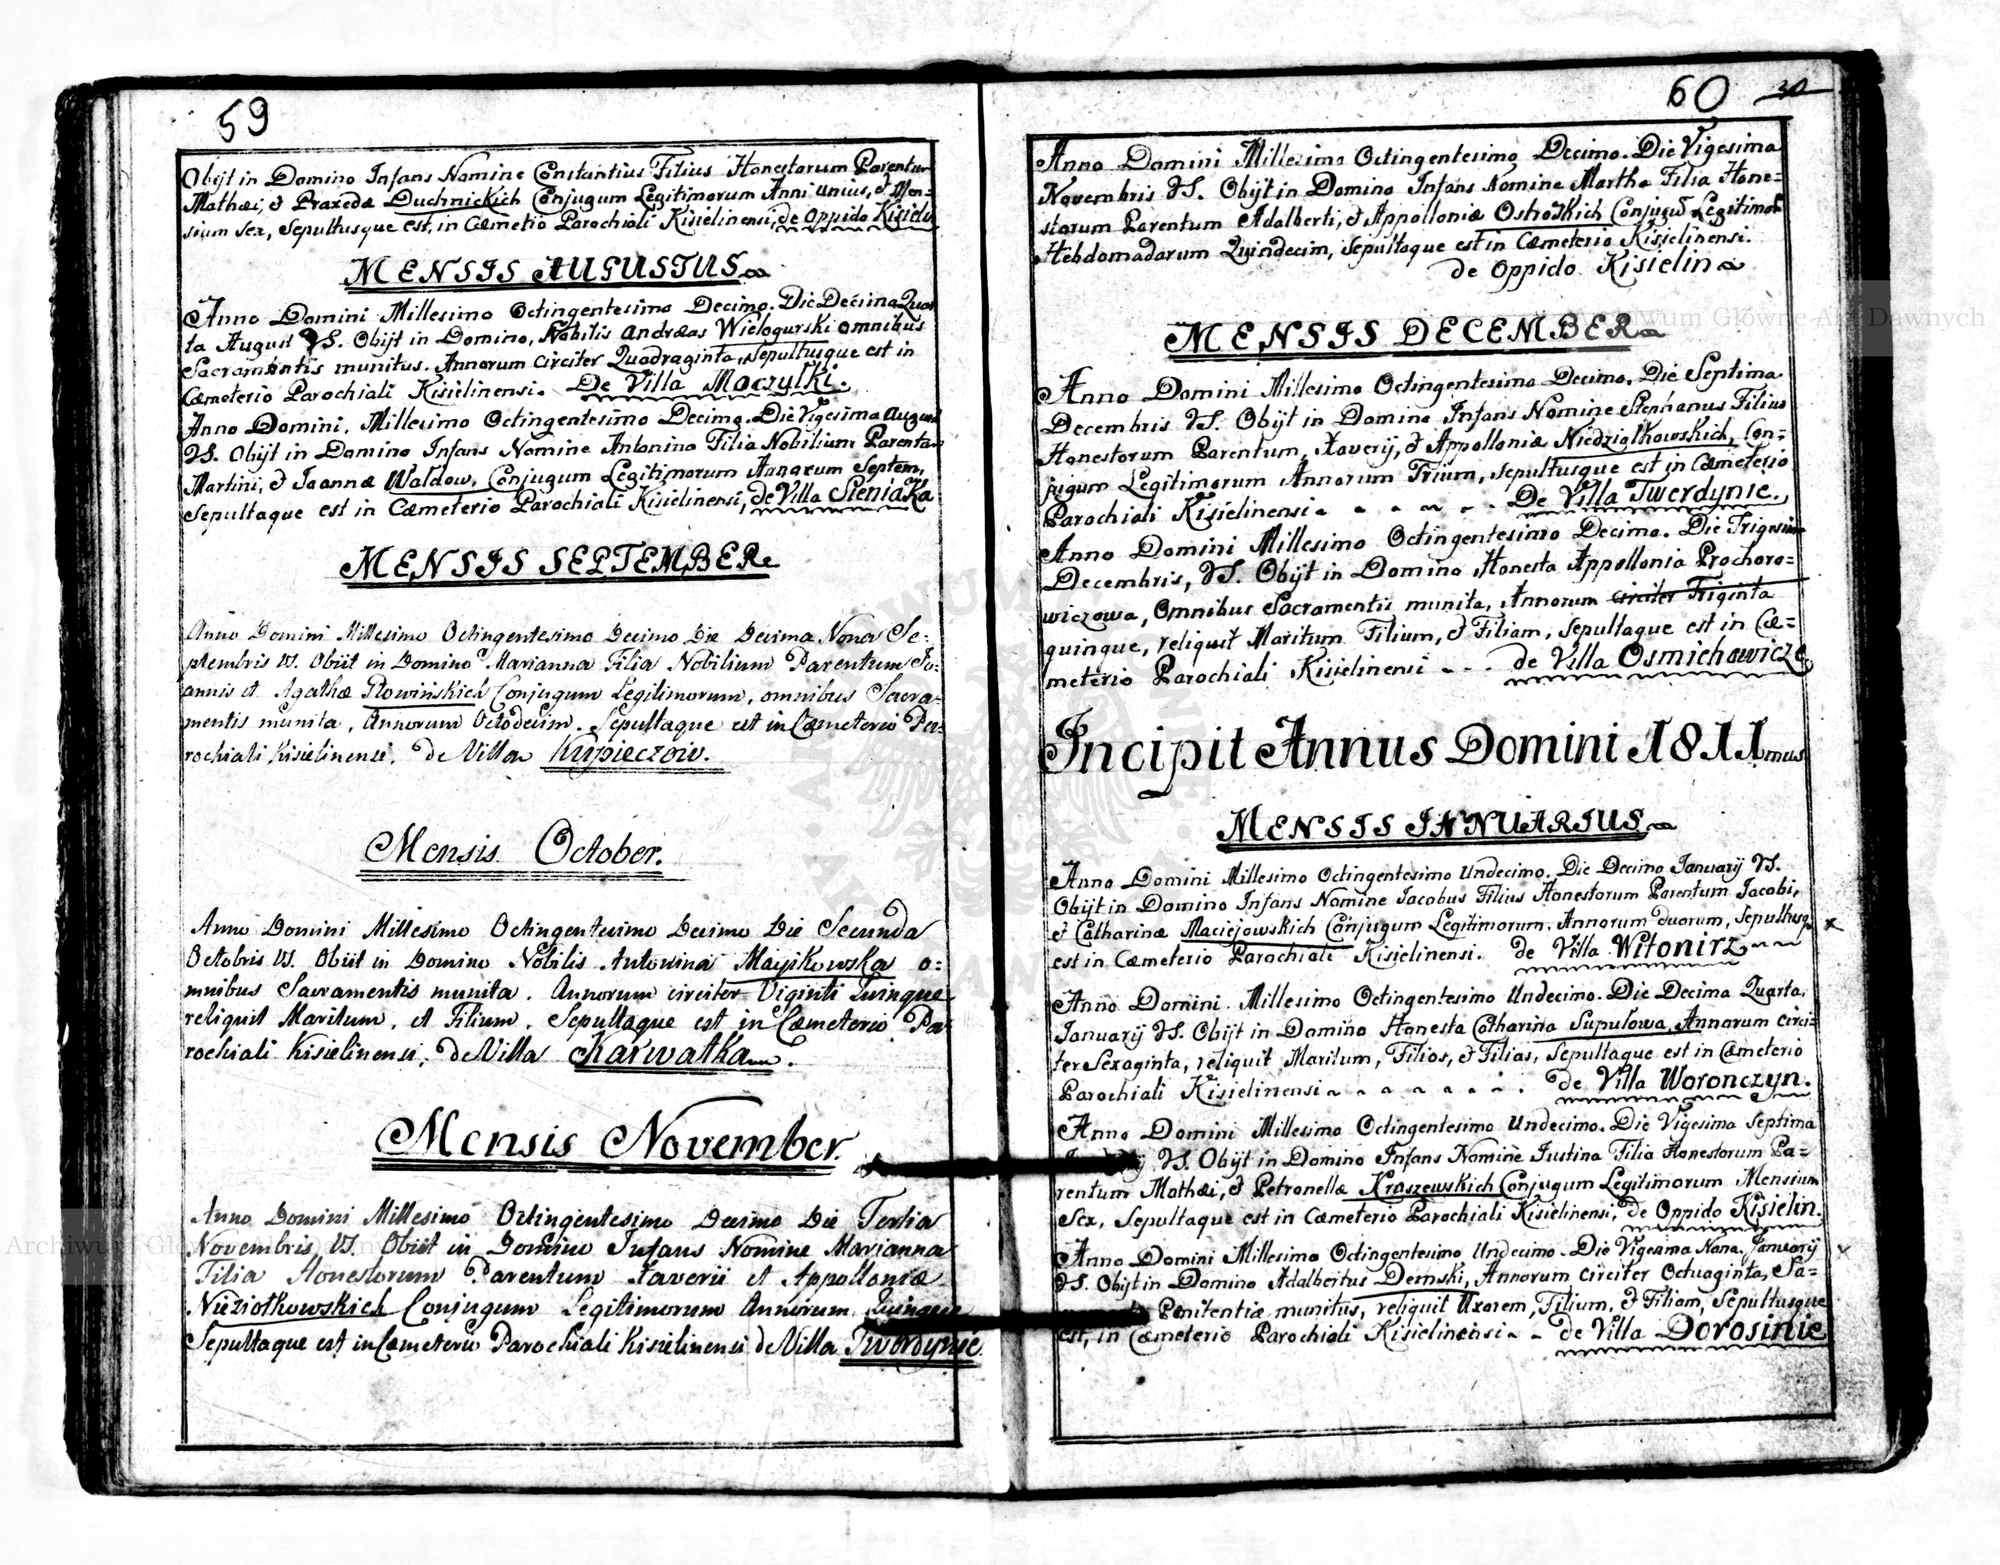 59
Obijt in Domino Infans Nomine Constantius Filius Honestorum Parentum
Mathæi, & Praxedæ Duchnickich Conjugum Legitimorum Anni unius, & Men-
sium sex, Sepultusque est, in Cæmetio Parochiali Kisielinensi, de Oppido Kisielin
MENSIS AUGUSTUS
Anno Domini Millesimo Octingentesimo Decimo. Die Decima Quar
ta August VS. Obijt in Domino, Nobilis Andræas Wielogurski omnibus
Sacramentis munitus. Annorum circiter Quadraginta, Sepultusque est in
Cæmeterio Parochiali Kisielinensi. De Villa Moczyłki.
Anno Domini. Millesimo Octingentesimo Decimo. Die Vigesima August
VS. Obijt in Domino Infans Nomine Antonina Filia Nobilium Parentum
Martini, & Joannæ Waldow, Conjugum Legitimorum Annorum Septem,
Sepultaque est in Cæmeterio Parochiali Kisielinensi, de Villa Sieniaka
MENSIS SEPTEMBER
Anno Domini Millesimo Octingentesimo Decimo Die Decima Nona Se-
ptembris VS. Obiit in Domino Marianna Filia Nobilium Parentum Jo-
annis et Agathæ Płowińskich Conjugum Legitimorum, omnibus Sacra-
mentis munita, Annorum Octodecim. Sepultaque est in Cæmeterio Pa-
rochiali Kisielinensi. de Villa Kupieczow.
Mensis October.
Anno Domini Millesimo Octingentesimo Decimo Die Secunda
Octobris VS. Obiit in Domino Nobilis Antonina Maypkowska o-
mnibus Sacramentis munita. Annorum circiter Viginti Quinque
reliquit Maritum, et Filium. Sepultaque est in Cæmeterio Pa-
rochiali Kisielinensi, de Villa Karwatka.
Mensis November.
Anno Domini Millesimo Octingentesimo Decimo Die Tertia
Novembris VS. Obiit in Domino Infans Nomine Marianna
Filia Honestorum Parentum Xaverii et Appolloniæ
Nieziołkowskich Conjugum Legitimorum Annorum Quinque
Sepultaque est in Cæmeterio Parochiali Kisielinensi de Villa Twordynie
60 30
Anno Domini Millesimo Octingentesimo Decimo. Die Vigesima
Novembris VS. Obijt in Domino Infans Nomine Martha Filia Hone-
storum Parentum Adalberti, & Appolloniæ Ostroskich Conjugū Legitimor
Hebdomadarum Quindecim, Sepultaque est in Cæmeterio Kisielinensi.
de Oppido Kisielin
MENSIS DECEMBER
Anno Domini Millesimo Octingentesimo Decimo. Die Septima
Decembris VS. Obijt in Domino Infans Nomine Stephanus Filius
Honestorum Parentum, Xaverij, & Appolloniæ Niedziołkowskich, Con-
jugum Legitimorum Annorum Trium, sepultusque est in Cæmeterio
Parochiali Kisielinensi De Villa Twerdynie.
Anno Domini Millesimo Octingentesimo Decimo. Die Trigesima
Decembris, VS. Obijt in Domino Honesta Appollonia Prochoro-
wiczowa, Omnibus Sacramentis munita, Annorum circiter Triginta
quinque, reliquit Maritum Filium, & Filiam, Sepultaque est in Cæ-
meterio Parochiali Kisielinensi - - - de Villa Osmichowicze
Incipit Annus Domini 1811mus
MENSIS IANUARIUS
Anno Domini Millesimo Octingentesimo Undecimo. Die Decimo Januarij VS.
Obijt in Domino Infans Nomine Jacobus Filius Honestorum Parentum Jacobi,
& Catharinæ Maciejowskich Conjugum Legitimorum. Annorum duorum, Sepultusq x
est in Cæmeterio Parochiali Kisielinensi. de Villa Witonirz
Anno Domini. Millesimo Octingentesimo Undecimo. Die Decima Quarta.
Januarij VS. Obijt in Domino Honesta Catharina Supułowa, Annorum circi-
ter Sexaginta, reliquit Maritum, Filios, & Filias, Sepultaque est in Cæmeterio
Parochiali Kisielinensi de Villa Woronczyn.
Anno Domini Millesimo Octingentesimo Undecimo. Die Vigesima Septima
VS. Obijt in Domino Infans Nomine Iustina Filia Honestorum Pa-
rentum Mathæi, & Petronellæ Kraszewskich Conjugum Legitimorum Mensium
Sex, Sepultaque est in Cæmeterio Parochiali Kisielinensi, de Oppido Kisielin.
Anno Domini Millesimo Octingentesimo Undecimo. Die Vigesima Nona. Januarij x
VS. Obijt in Domino Adalbertus Demski, Annorum circiter Octuaginta, Sa-
Penitentiæ munitus, reliquit Uxorem, Filium, & Filiam, Sepultusque
est, in Cæmeterio Parochiali Kisielinensi - - de Villa Dorosinie
Archiwum Główne Akt Dawnych